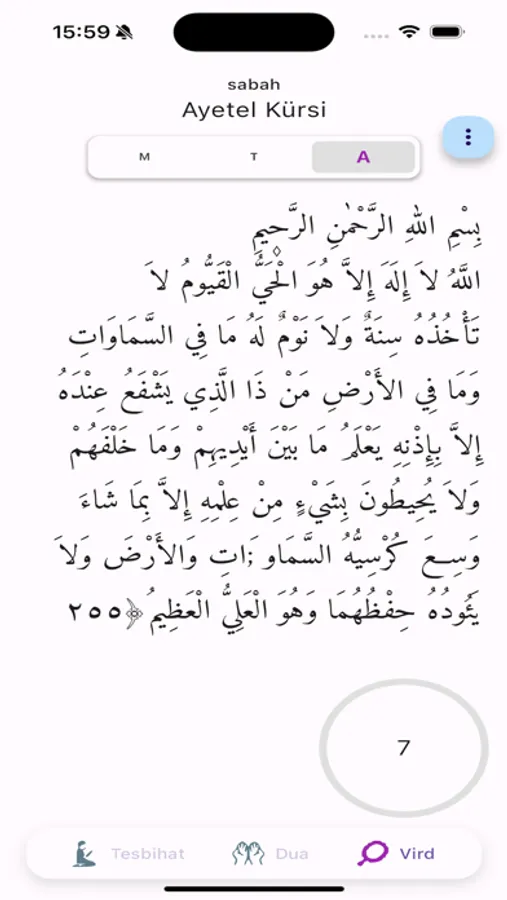 15:59
sabah
Ayetel Kürsi
M T A
بِسْمِ اللهِ الرَّحْمٰنِ الرَّحِيمِ
اللَّهُ لاَ إِلَهَ إِلاَّ هُوَ الْحَيُّ الْقَيُّومُ لاَ
تَأْخُذُهُ سِنَةٌ وَلاَ نَوْمٌ لَهُ مَا فِي السَّمَاوَاتِ
وَمَا فِي الأَرْضِ مَنْ ذَا الَّذِي يَشْفَعُ عِنْدَهُ
إِلاَّ بِإِذْنِهِ يَعْلَمُ مَا بَيْنَ أَيْدِيهِمْ وَمَا خَلْفَهُمْ
وَلاَ يُحِيطُونَ بِشَيْءٍ مِنْ عِلْمِهِ إِلاَّ بِمَا شَاءَ
وَسِعَ كُرْسِيُّهُ السَّمَاو ;اتِ وَالأَرْضَ وَلاَ
يَئُودُهُ حِفْظُهُمَا وَهُوَ الْعَلِيُّ الْعَظِيمُ ﴿٢٥٥
7
Tesbihat Dua Vird